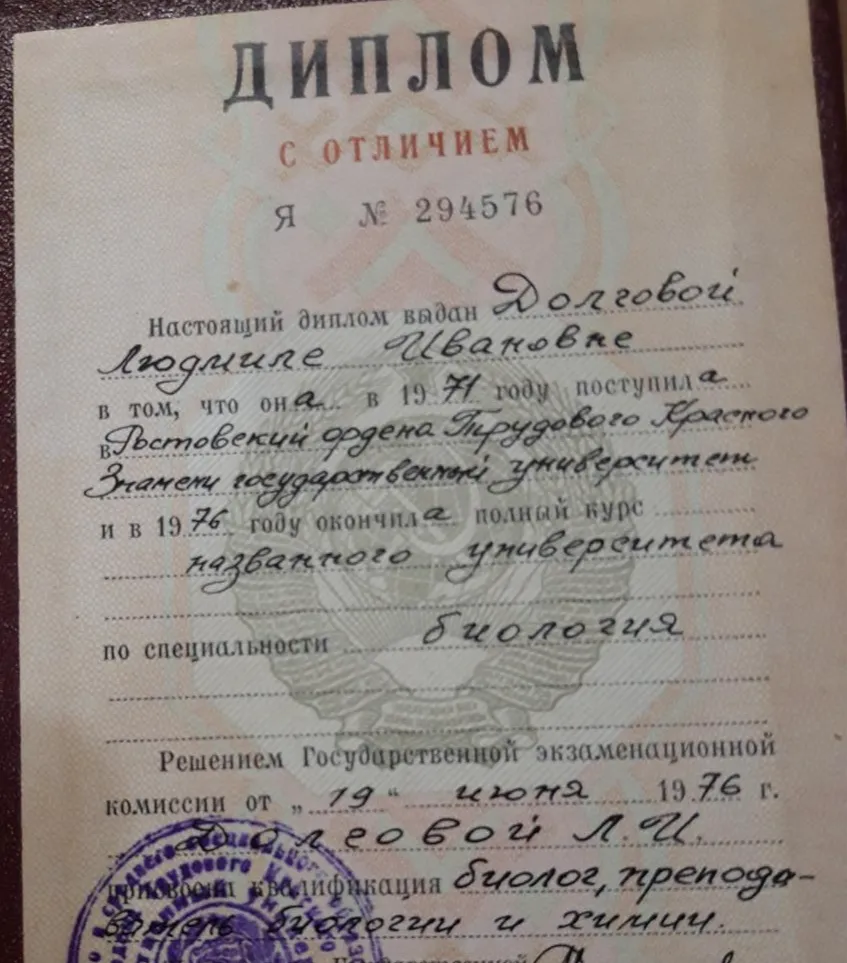 ДИПЛОМ
С ОТЛИЧИЕМ
Я № 294576
Настоящий диплом выдан Долговой
Людмиле Ивановне
в том, что она в 1971 году поступила
в Ростовский ордена Трудового Красного
Знамени государственный университет
и в 1976 году окончила полный курс
названного университета
по специальности биология
Решением Государственной экзаменационной
комиссии от „19“ июня 1976 г.
Долговой Л.И.
присвоена квалификация биолог, препода-
ватель биологии и химии.